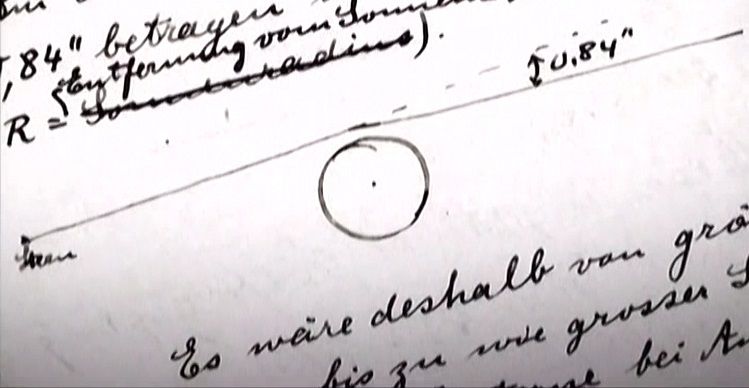 ,84" betragen
(Entfernung vom Sonnen
R = Sonnenradius).
0,84"
Es wäre deshalb von grö
bis zu wie grosser S
bei An